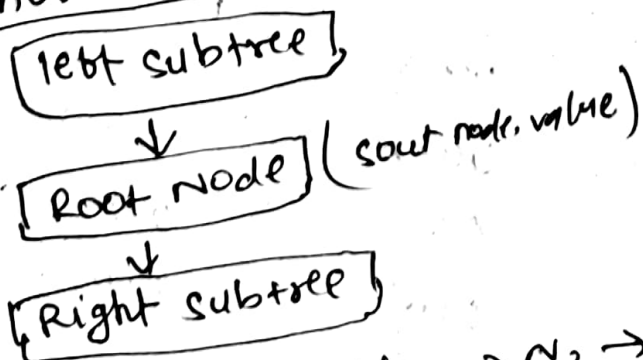 left subtree
↓
Root Node (sout node.value)
↓
Right subtree
→